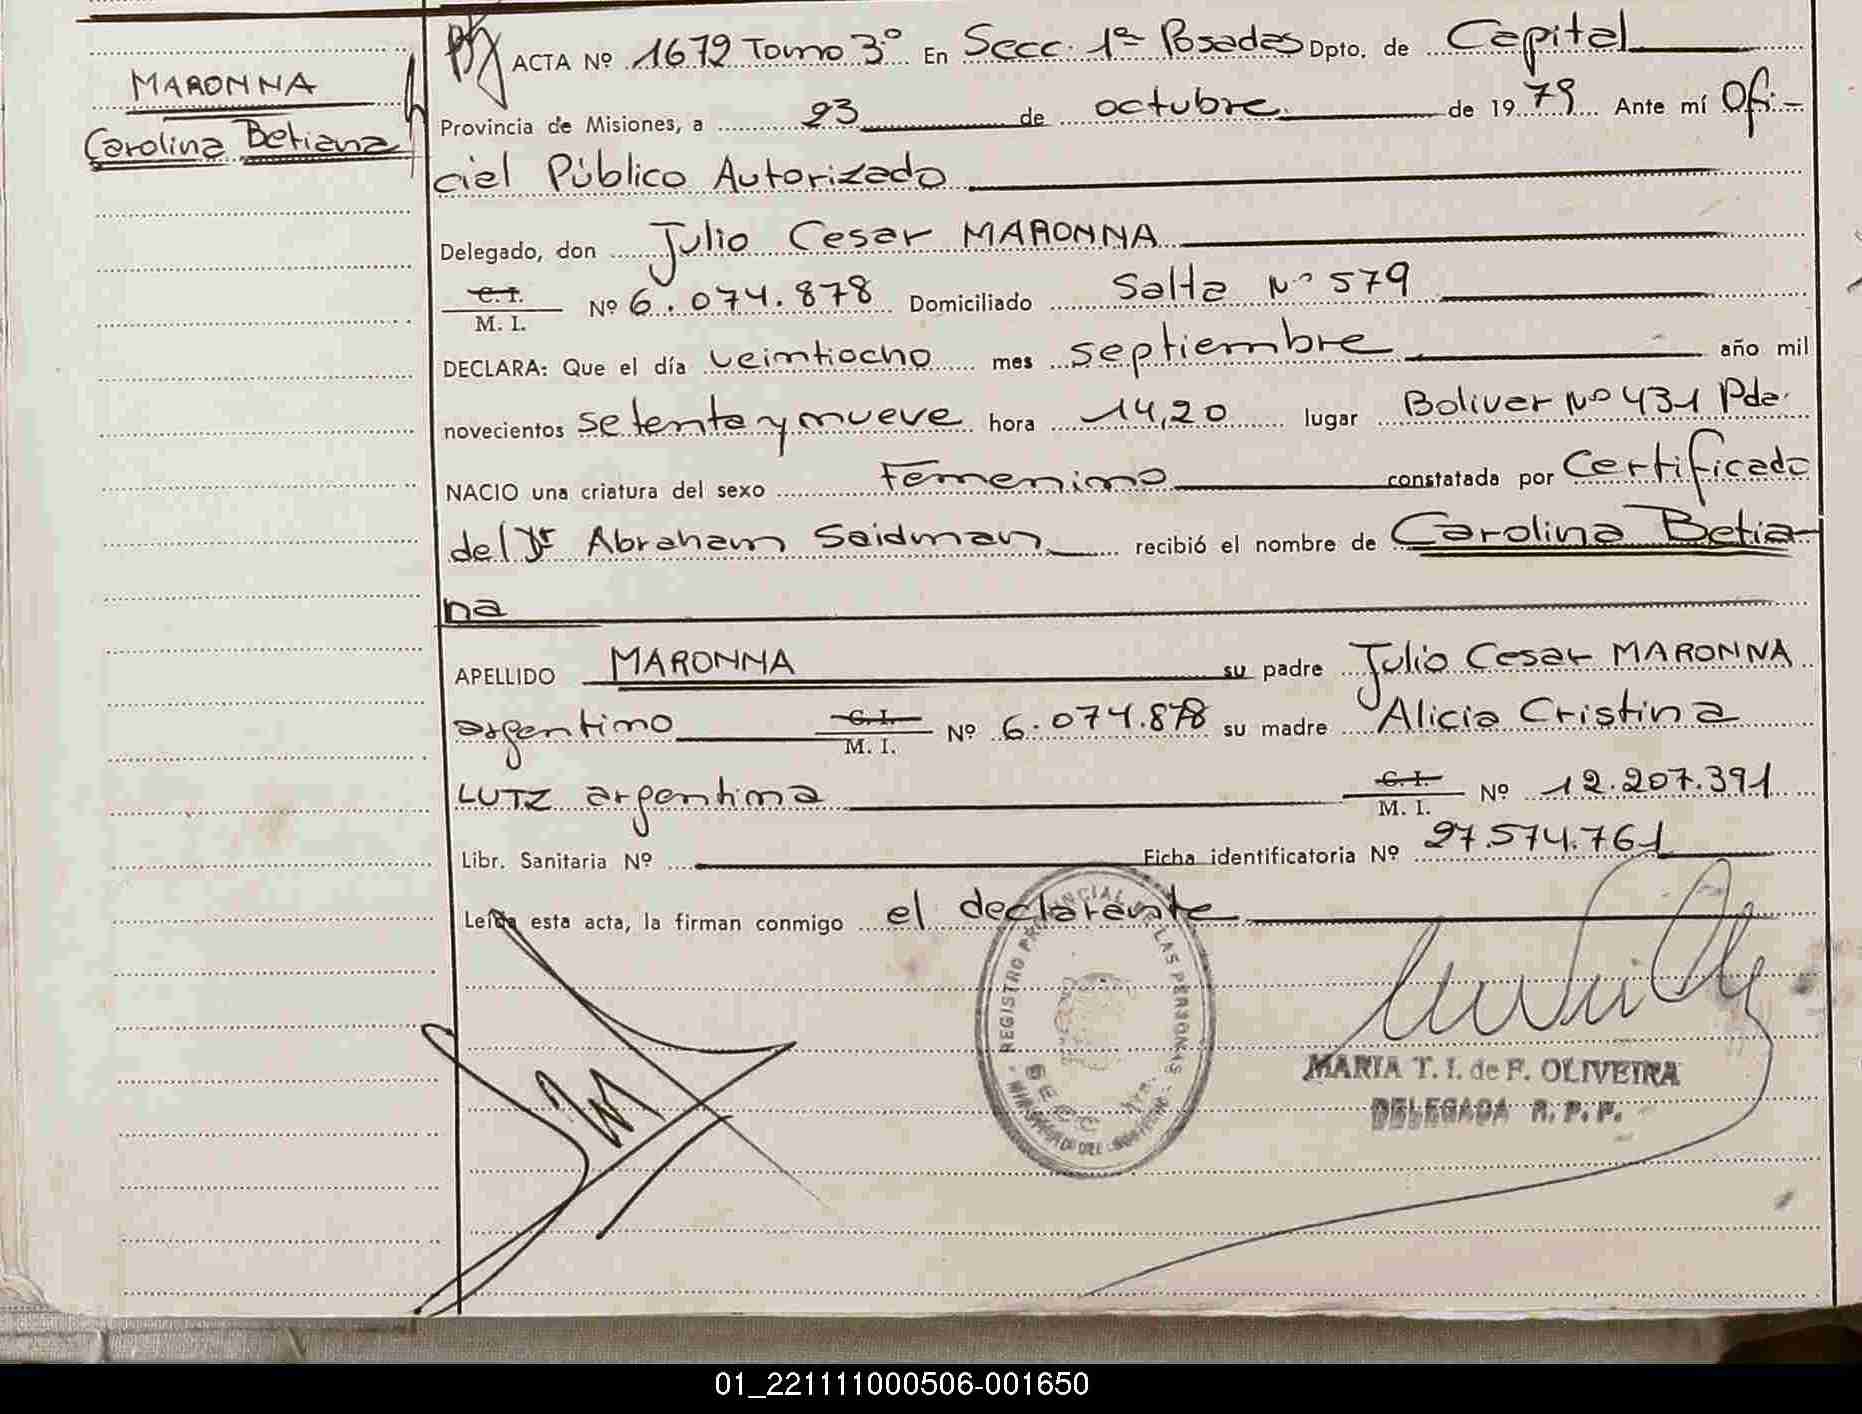 MARONNA
Carolina Betiana
ACTA Nº 1672 Tomo 3º En Secc. 1ª Posadas Dpto. de Capital
Provincia de Misiones, a 23 de octubre de 1979 Ante mí Ofi-
cial Público Autorizado
Delegado, don Julio Cesar MARONNA
C. I.
M. I. Nº 6.074.878 Domiciliado Salta Nº 579
DECLARA: Que el día veintiocho mes septiembre año mil
novecientos setenta y nueve hora 14,20 lugar Bolivar Nº 431 Pda.
NACIO una criatura del sexo Femenino constatada por Certificado
del Dr Abraham Saidman recibió el nombre de Carolina Betia-
na
APELLIDO MARONNA su padre Julio Cesar MARONNA
argentino C. I. M. I. Nº 6.074.878 su madre Alicia Cristina
LUTZ argentina C. I. M. I. Nº 12.207.391
Libr. Sanitaria Nº Ficha identificatoria Nº 27.574.761
Leída esta acta, la firman conmigo el declarante
REGISTRO PROVINCIAL DE LAS PERSONAS
SECC. 1ra.
MARIA T. I. de F. OLIVEIRA
DELEGADA R. P. P.
01_221111000506-001650